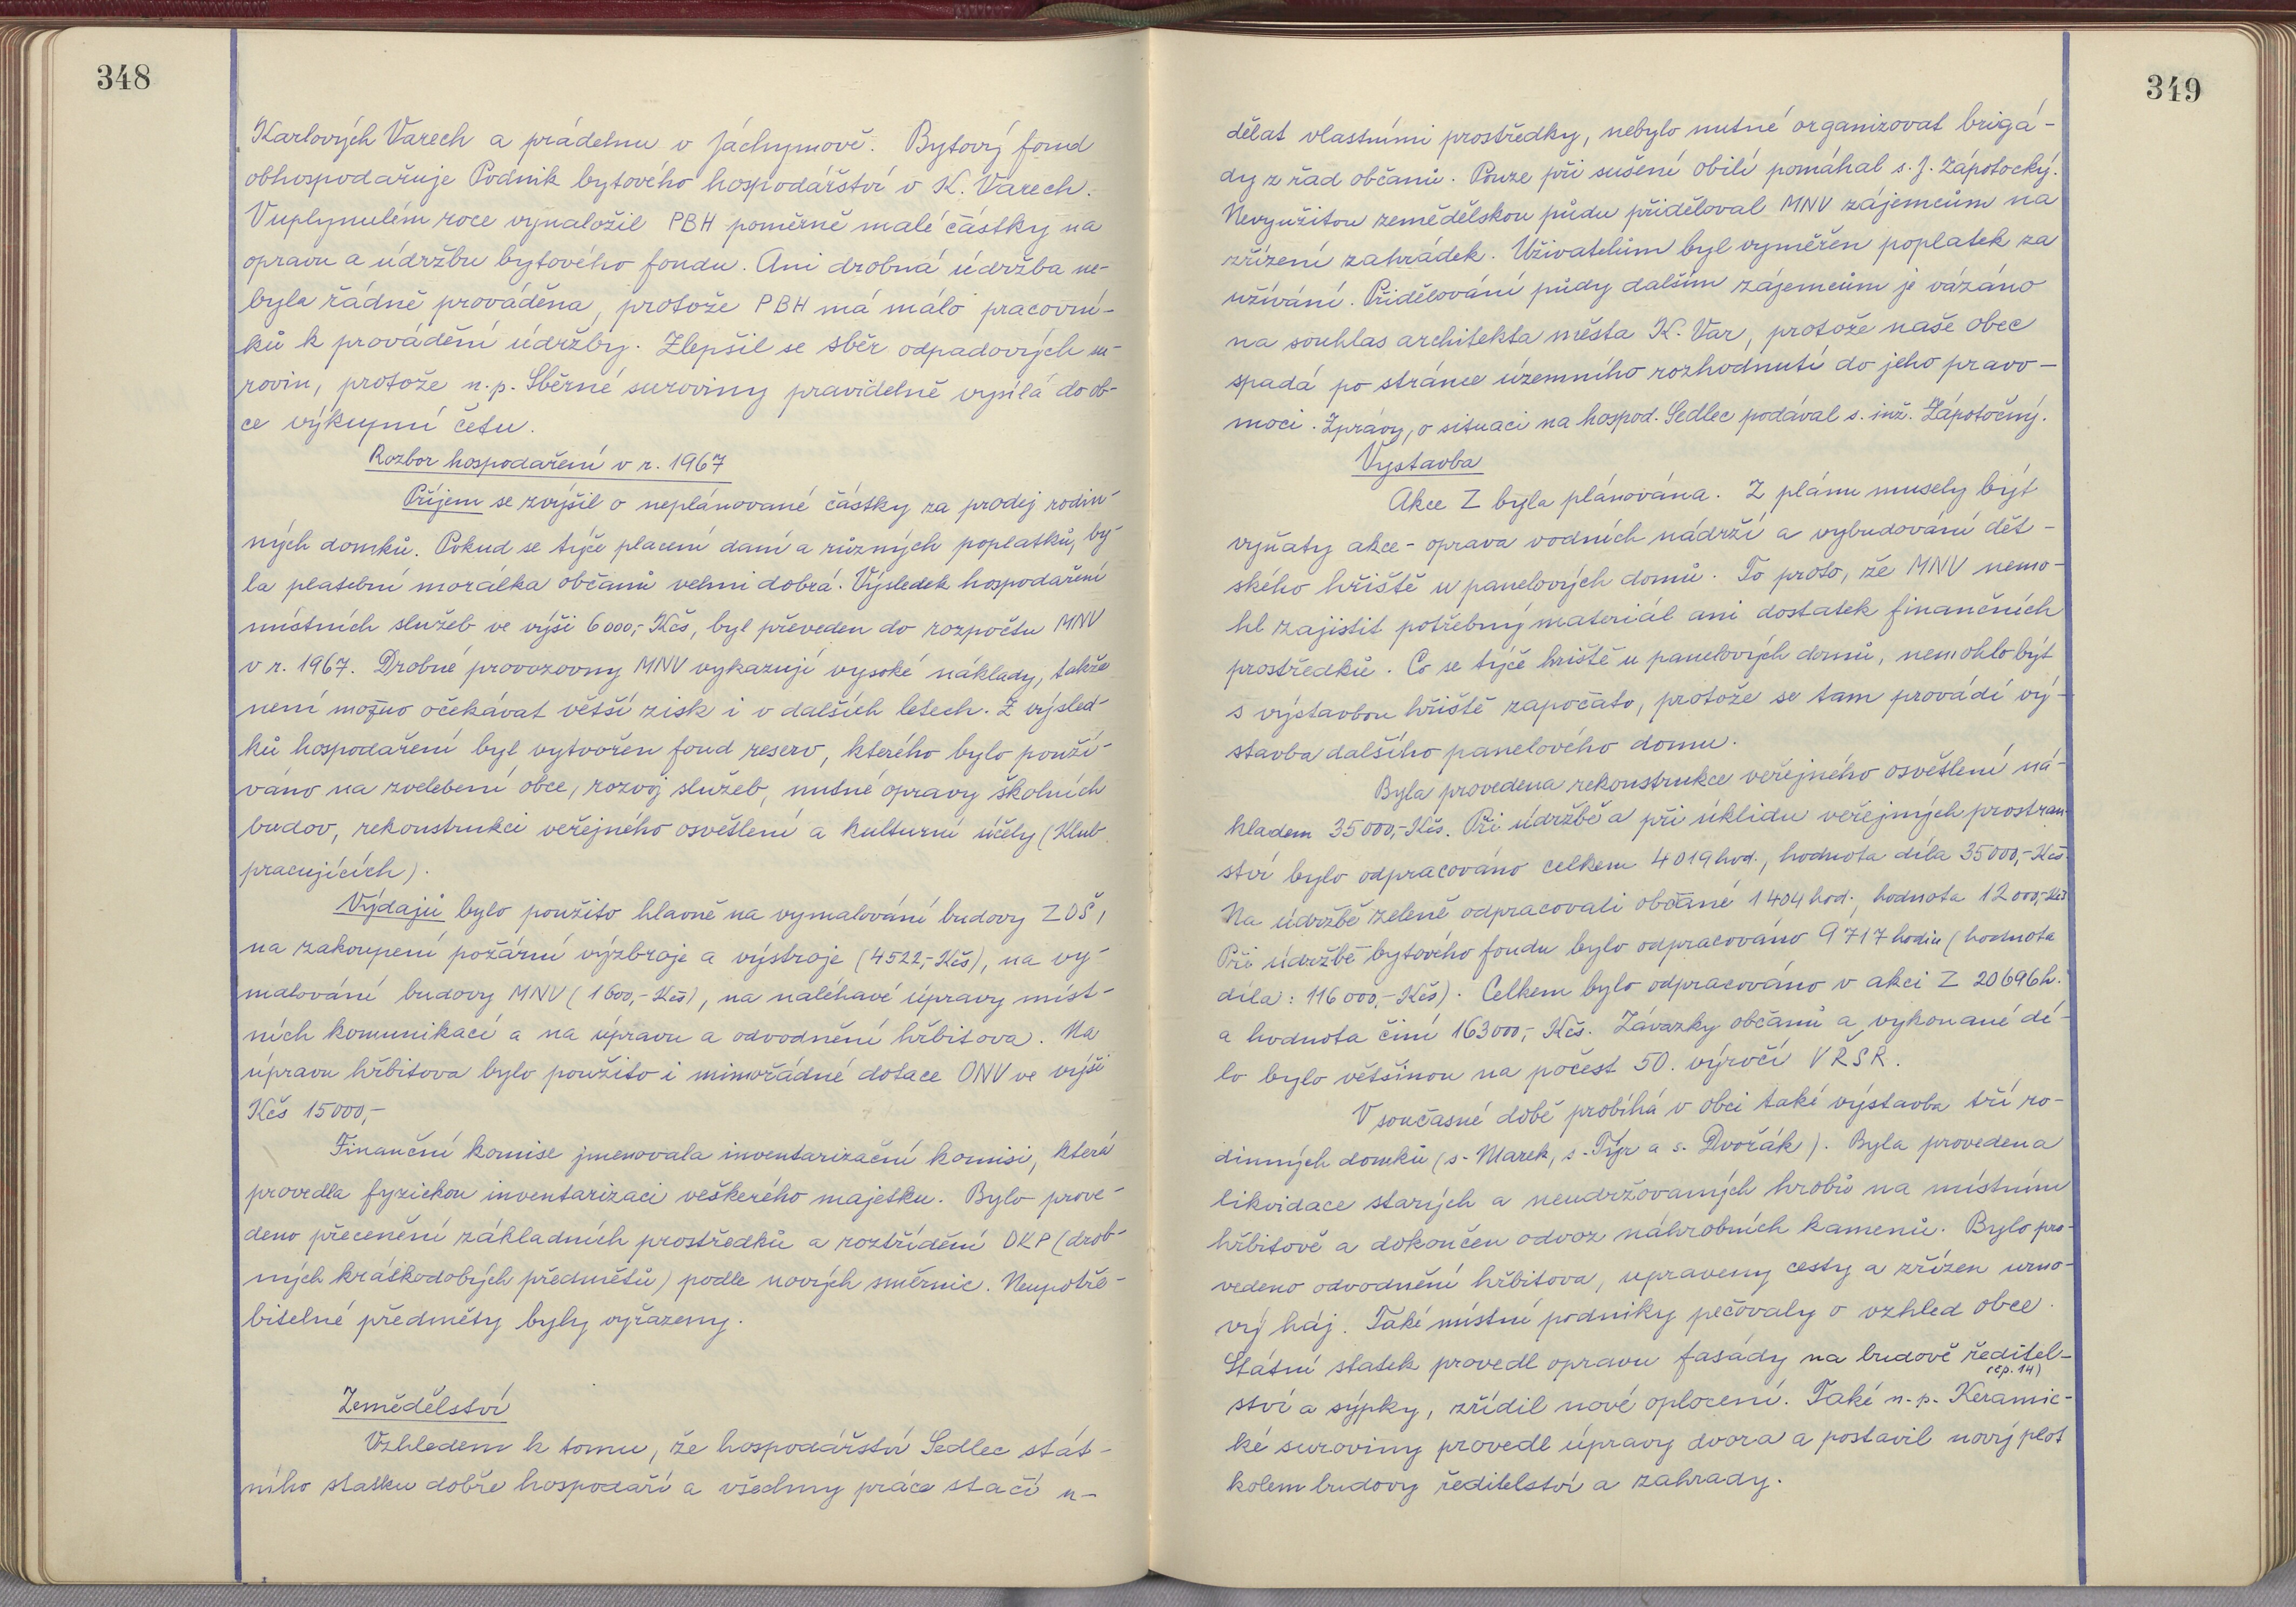 348
Karlových Varech a prádelnu v Jáchymově. Bytový fond
obhospodařuje Podnik bytového hospodářství v K. Varech.
V uplynulém roce vynaložil PBH poměrně malé částky na
opravu a údržbu bytového fondu. Ani drobná údržba ne-
byla řádně prováděna, protože PBH má málo pracovní-
ků k provádění údržby. Zlepšil se sběr odpadových su-
rovin, protože n.p. Sběrné suroviny pravidelně vysílá do ob-
ce výkupní četu.
Rozbor hospodaření v r. 1967
Příjem se zvýšil o neplánované částky za prodej rodin-
ných domků. Pokud se týče placení daní a různých poplatků, by-
la platební morálka občanů velmi dobrá. Výsledek hospodaření
místních služeb ve výši 6000,- Kčs, byl převeden do rozpočtu MNV
v r. 1967. Drobné provozovny MNV vykazují vysoké náklady, takže
není možno očekávat větší zisk i v dalších letech. Z výsled-
ků hospodaření byl vytvořen fond reserv, kterého bylo použí-
váno na zvelebení obce, rozvoj služeb, nutné opravy školních
budov, rekonstrukci veřejného osvětlení a kulturní účely (Klub
pracujících).
Výdajů bylo použito hlavně na vymalování budovy ZDŠ,
na zakoupení požární výzbroje a výstroje (4522,- Kčs), na vy-
malování budovy MNV (1600,- Kčs), na naléhavé úpravy míst-
ních komunikací a na úpravu a odvodnění hřbitova. Na
úpravu hřbitova bylo použito i mimořádné dotace ONV ve výši
Kčs 15000,-
Finanční komise jmenovala inventarizační komisi, která
provedla fyzickou inventarizaci veškerého majetku. Bylo prove-
deno přecenění základních prostředků a roztřídění DKP (drob-
ných krátkodobých předmětů) podle nových směrnic. Neupotře-
bitelné předměty byly vyřazeny.
Zemědělství
Vzhledem k tomu, že hospodářství Sedlec stát-
ního statku dobře hospodaří a všechny práce stačí u-
349
dělat vlastními prostředky, nebylo nutné organizovat brigá-
dy z řad občanů. Pouze při sušení obilí pomáhal s. J. Zápotocký.
Nevyužitou zemědělskou půdu přiděloval MNV zájemcům na
zřízení zahrádek. Uživatelům byl vyměřen poplatek za
užívání. Přidělování půdy dalším zájemcům je vázáno
na souhlas architekta města K. Var, protože naše obec
spadá po stránce územního rozhodnutí do jeho pravo-
moci. Zprávy, o situaci na hospod. Sedlec podával s. inž. Zápotočný.
Výstavba
Akce Z byla plánována. Z plánu musely být
vyňaty akce - oprava vodních nádrží a vybudování dět-
ského hřiště u panelových domů. To proto, že MNV nemo-
hl zajistit potřebný materiál ani dostatek finančních
prostředků. Co se týče hřiště u panelových domů, nemohlo být
s výstavbou hřiště započato, protože se tam provádí vý-
stavba dalšího panelového domu.
Byla provedena rekonstrukce veřejného osvětlení ná-
kladem 35000,- Kčs. Při údržbě a při úklidu veřejných prostran-
ství bylo odpracováno celkem 4019 hod., hodnota díla 35000,- Kčs.
Na údržbě zeleně odpracovali občané 1404 hod., hodnota 12000,- Kčs
Při údržbě bytového fondu bylo odpracováno 9717 hodin (hodnota
díla: 116000,- Kčs). Celkem bylo odpracováno v akci Z 20696 h.
a hodnota činí 163000,- Kčs. Závazky občanů a vykonané dí-
lo bylo většinou na počest 50. výročí VŘSR.
V současné době probíhá v obci také výstavba tří ro-
dinných domků (s. Marek, s. Týr a s. Dvořák). Byla provedena
likvidace starých a neudržovaných hrobů na místním
hřbitově a dokončen odvoz náhrobních kamenů. Bylo pro-
vedeno odvodnění hřbitova, upraveny cesty a zřízen urno-
vý háj. Také místní podniky pečovaly o vzhled obce.
Státní statek provedl opravu fasády na budově ředitel-
(čp. 14)
ství a sýpky, zřídil nové oplocení. Také n.p. Keramic-
ké suroviny provedl úpravy dvora a postavil nový plot
kolem budovy ředitelství a zahrady.